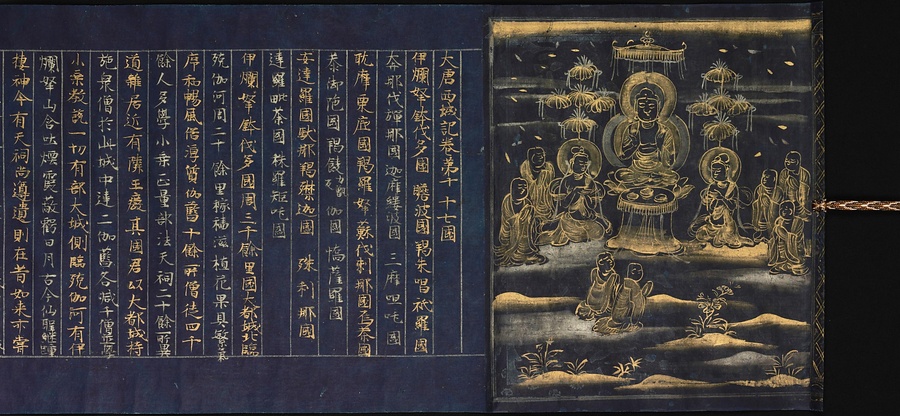 大唐西域記卷第十 十七國
伊爛拏鉢伐多國 瞻波國 羯朱嗢祇羅國
奔那伐彈那國 迦摩縷波國 三摩呾吒國
耽摩栗底國 羯羅拏蘇伐剌那國 烏荼國
恭御陀國 羯餕伽國 憍薩羅國
安達羅國 馱那羯磔迦國 珠利耶國
達羅毗荼國 秣羅矩吒國
伊爛拏鉢伐多國周三千餘里國大都城北臨
殑伽河周二十餘里稼穡滋植花果具繁氣
序和暢風俗淳質伽藍十餘所僧徒四千
餘人多學小乘正量部法天祠二十餘所異
道雜居近有隣王廢其國君以大都城持
施眾僧於此城中建二伽藍各減千僧並學
小乘教說一切有部大城側臨殑伽河有伊
爛拏山含吐煙霞蔽虧日月古今仙聖繼踵
棲神今有天祠尚遵遺則在昔如來亦嘗